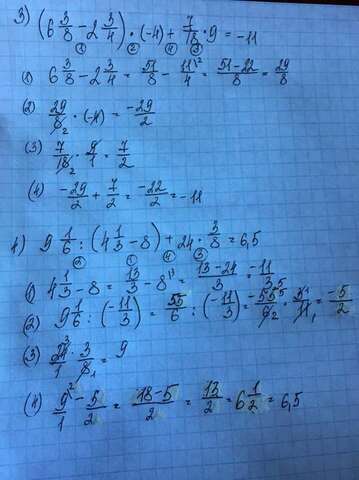 3) (6 3/8 - 2 3/4) · (-4) + 7/18 · 9 = -11
① ② ④ ③
(1) 6 3/8 - 2 3/4 = 51/8 - 11/4 = (51-22)/8 = 29/8
(2) 29/8 · (-4) = -29/2
(3) 7/18 · 9/1 = 7/2
(4) -29/2 + 7/2 = -22/2 = -11
4) 9 1/6 : (4 1/3 - 8) + 24 · 3/8 = 6,5
② ① ④ ③
(1) 4 1/3 - 8 = 13/3 - 8 = (13-24)/3 = -11/3
(2) 9 1/6 : (-11/3) = 55/6 : (-11/3) = -55/6 · 3/11 = -5/2
(3) 24/1 · 3/8 = 9
(4) 9/1 - 5/2 = (18-5)/2 = 13/2 = 6 1/2 = 6,5